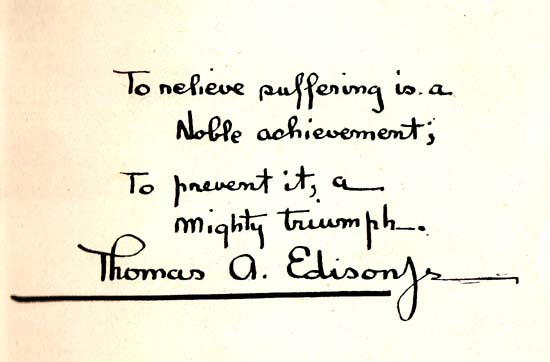 To relieve suffering is a
Noble achievement;
To prevent it, a
mighty triumph.
Thomas A. Edison Jr